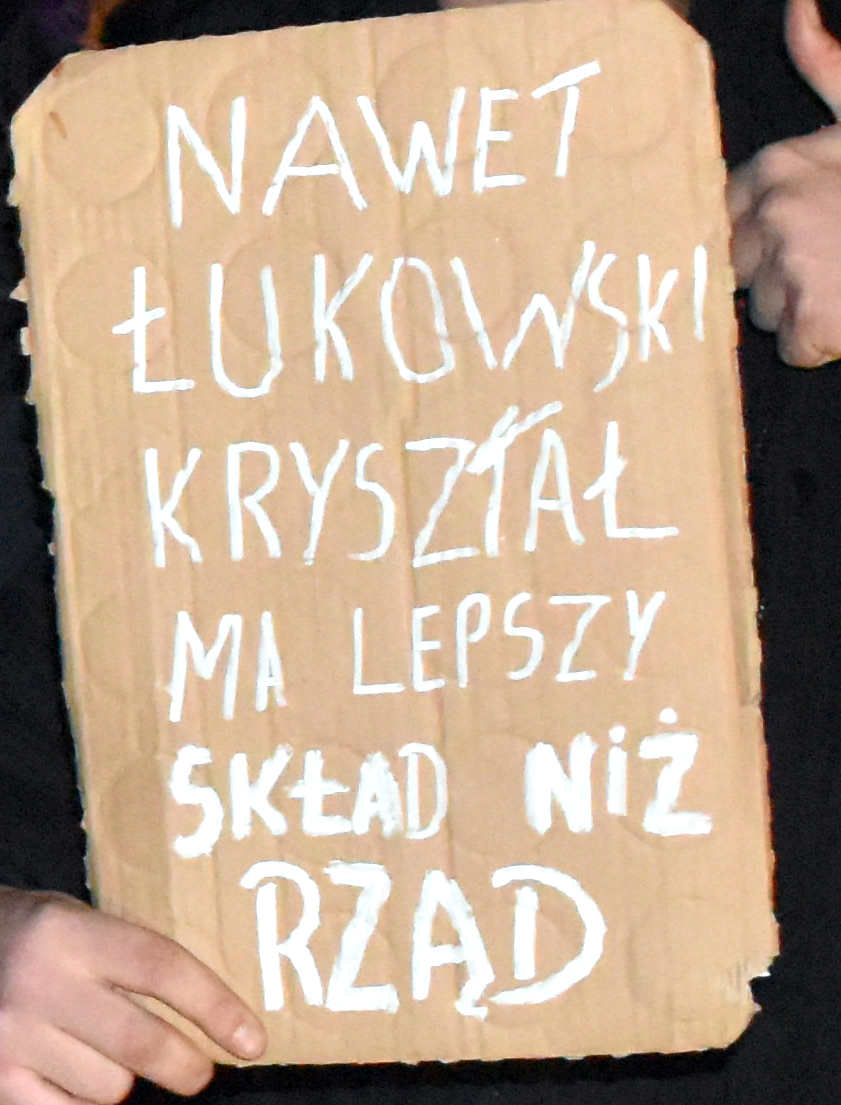 NAWET
ŁUKOWSKI
KRYSZTAŁ
MA LEPSZY
SKŁAD NiŻ
RZĄD